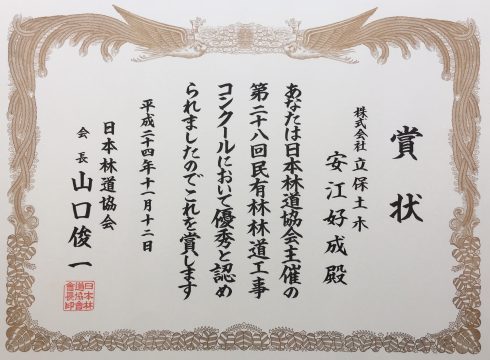 賞状
株式会社 立保土木
安江好成殿
あなたは日本林道協会主催の
第二十八回民有林林道工事
コンクールにおいて優秀と認め
られましたのでこれを賞します
平成二十四年十一月十二日
日本林道協会
会長 山口俊一
日本林
道協會
會長印